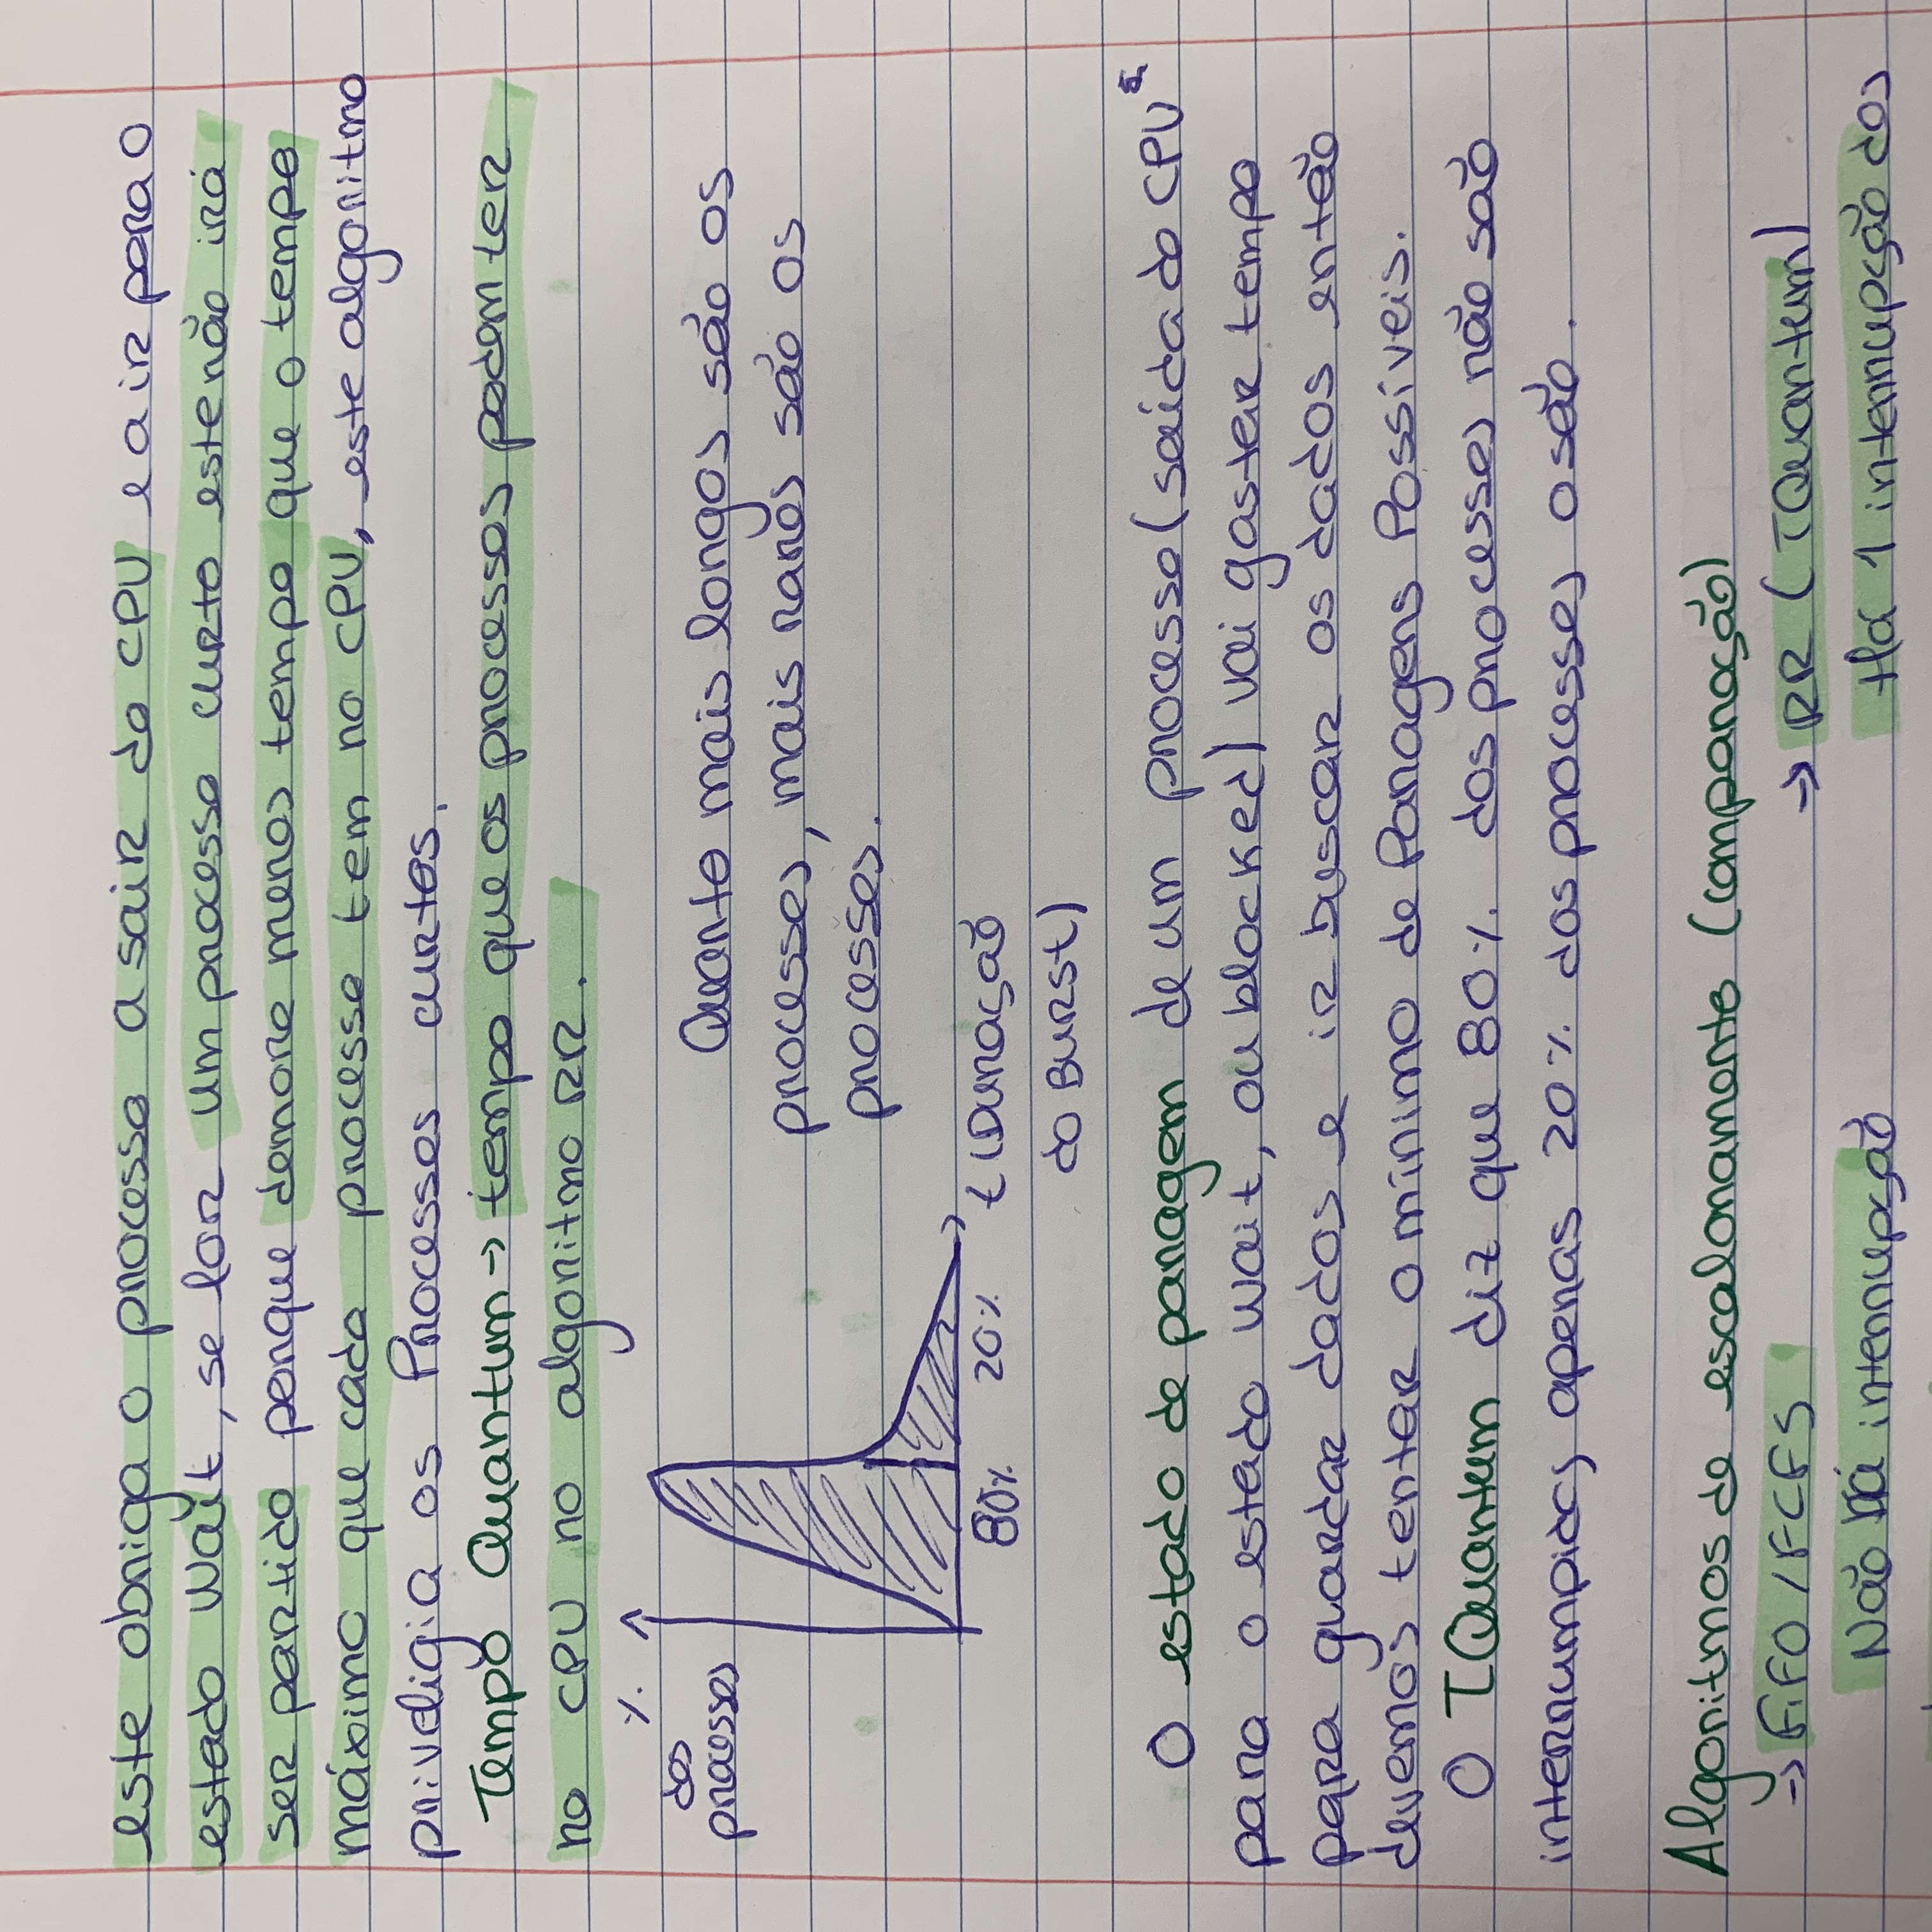 este obriga o processo a sair do CPU e a ir para o
estado Wait, se for um processo curto este não irá
ser partido porque demora menos tempo que o tempo
máximo que cada processo tem no CPU, este algoritmo
priveligia os Processos curtos.
Tempo Quantum → tempo que os processos podem ter
no CPU no algoritmo RR.
% dos processos
Quanto mais longos são os
processos, mais raros são os
processos.
80% 20% t (Duração
do Burst)
O estado de paragem de um processo (saída do CPU
para o estado wait, ou blocked) vai gastar tempo
para guardar dados e ir buscar os dados então
devemos tentar o mínimo de Paragens Possíveis.
O TQuantum diz que 80% dos processos não são
interrumpidos apenas 20% dos processos o são.
Algoritmos de escalonamento (comparação)
→ FiFO / FCFS → RR (TQuantum)
Não há interrupção Há 1 interrupção dos